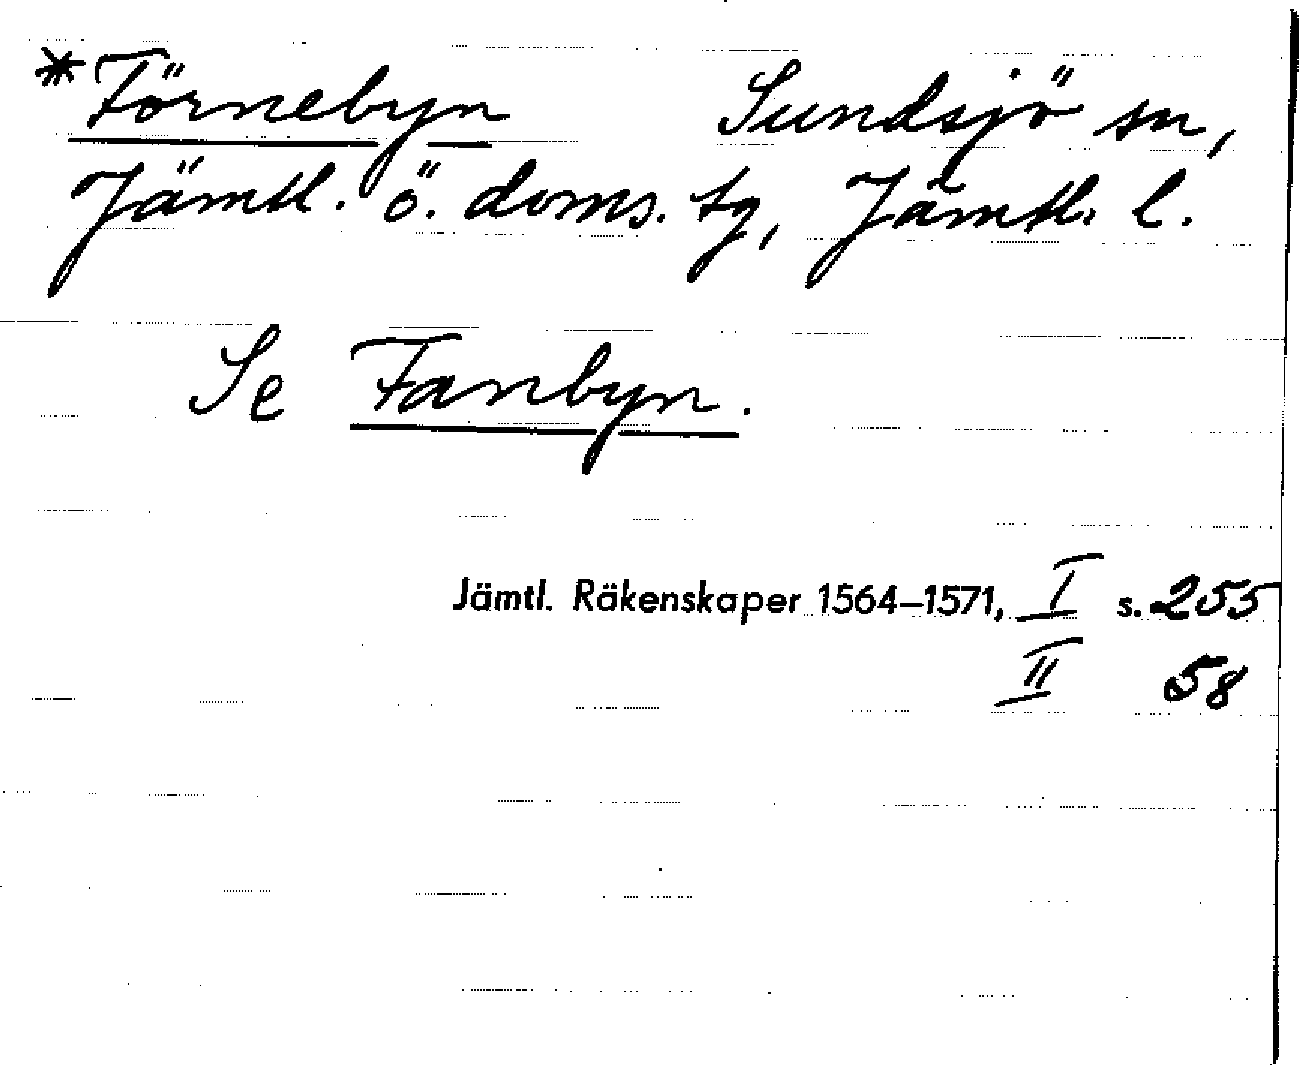 *Förnebyn Sundsjö sn,
Jämtl. ö. doms. tg, Jämtl. l.
Se Fanbyn.
Jämtl. Räkenskaper 1564–1571, I s. 255
II 58